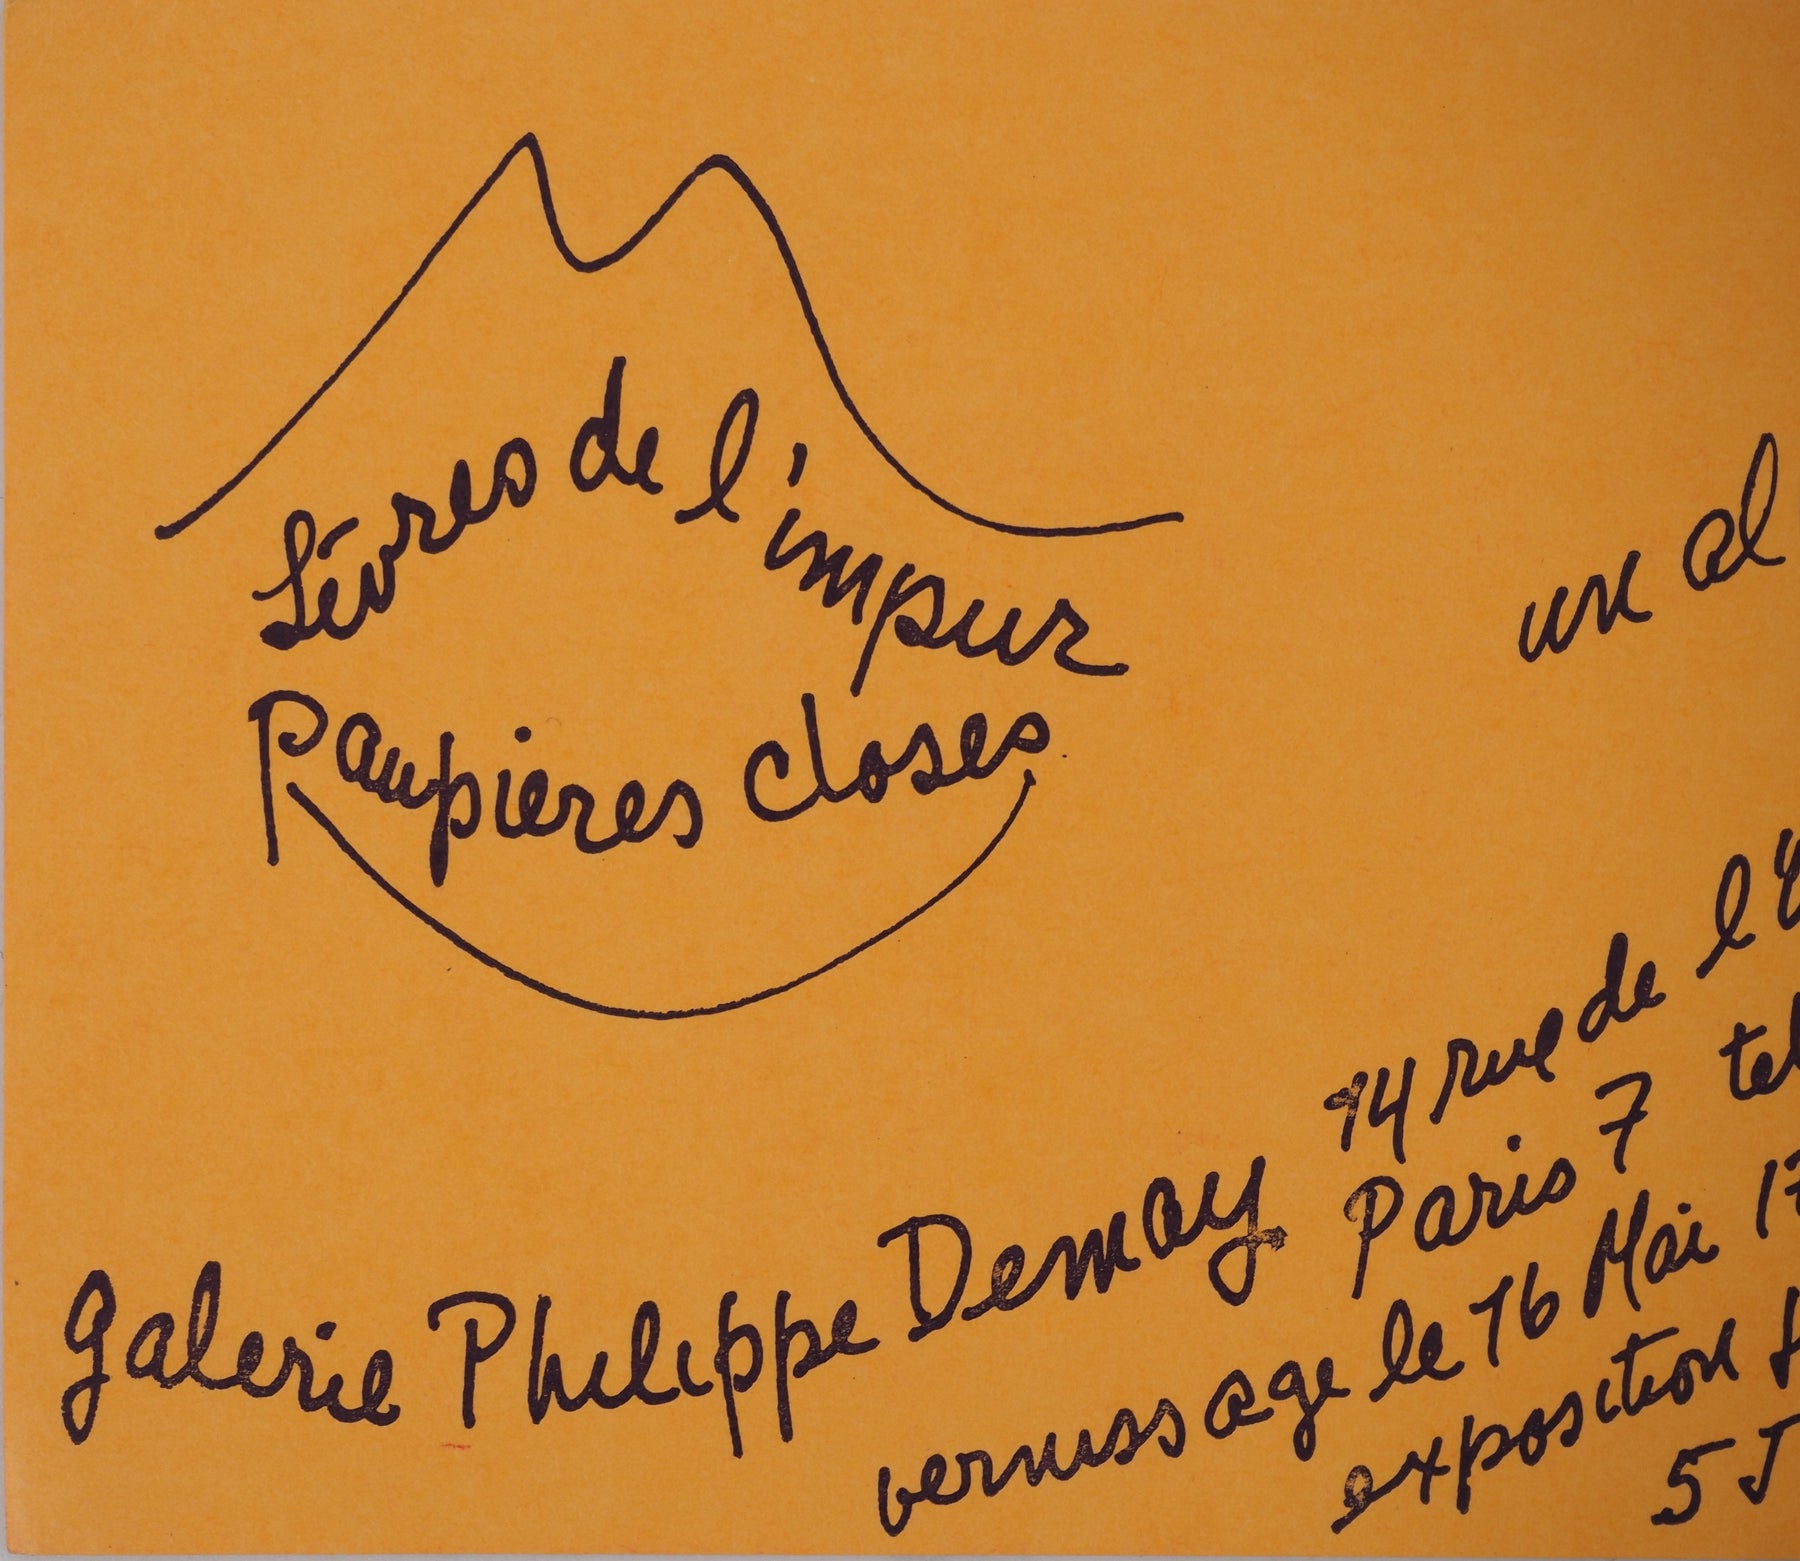 Lèvres de l'impur
Paupières closes
un al
Galerie Philippe Demay
14 rue de l'U
Paris 7 tel
vernissage le 16 Mai 17
exposition
5 J